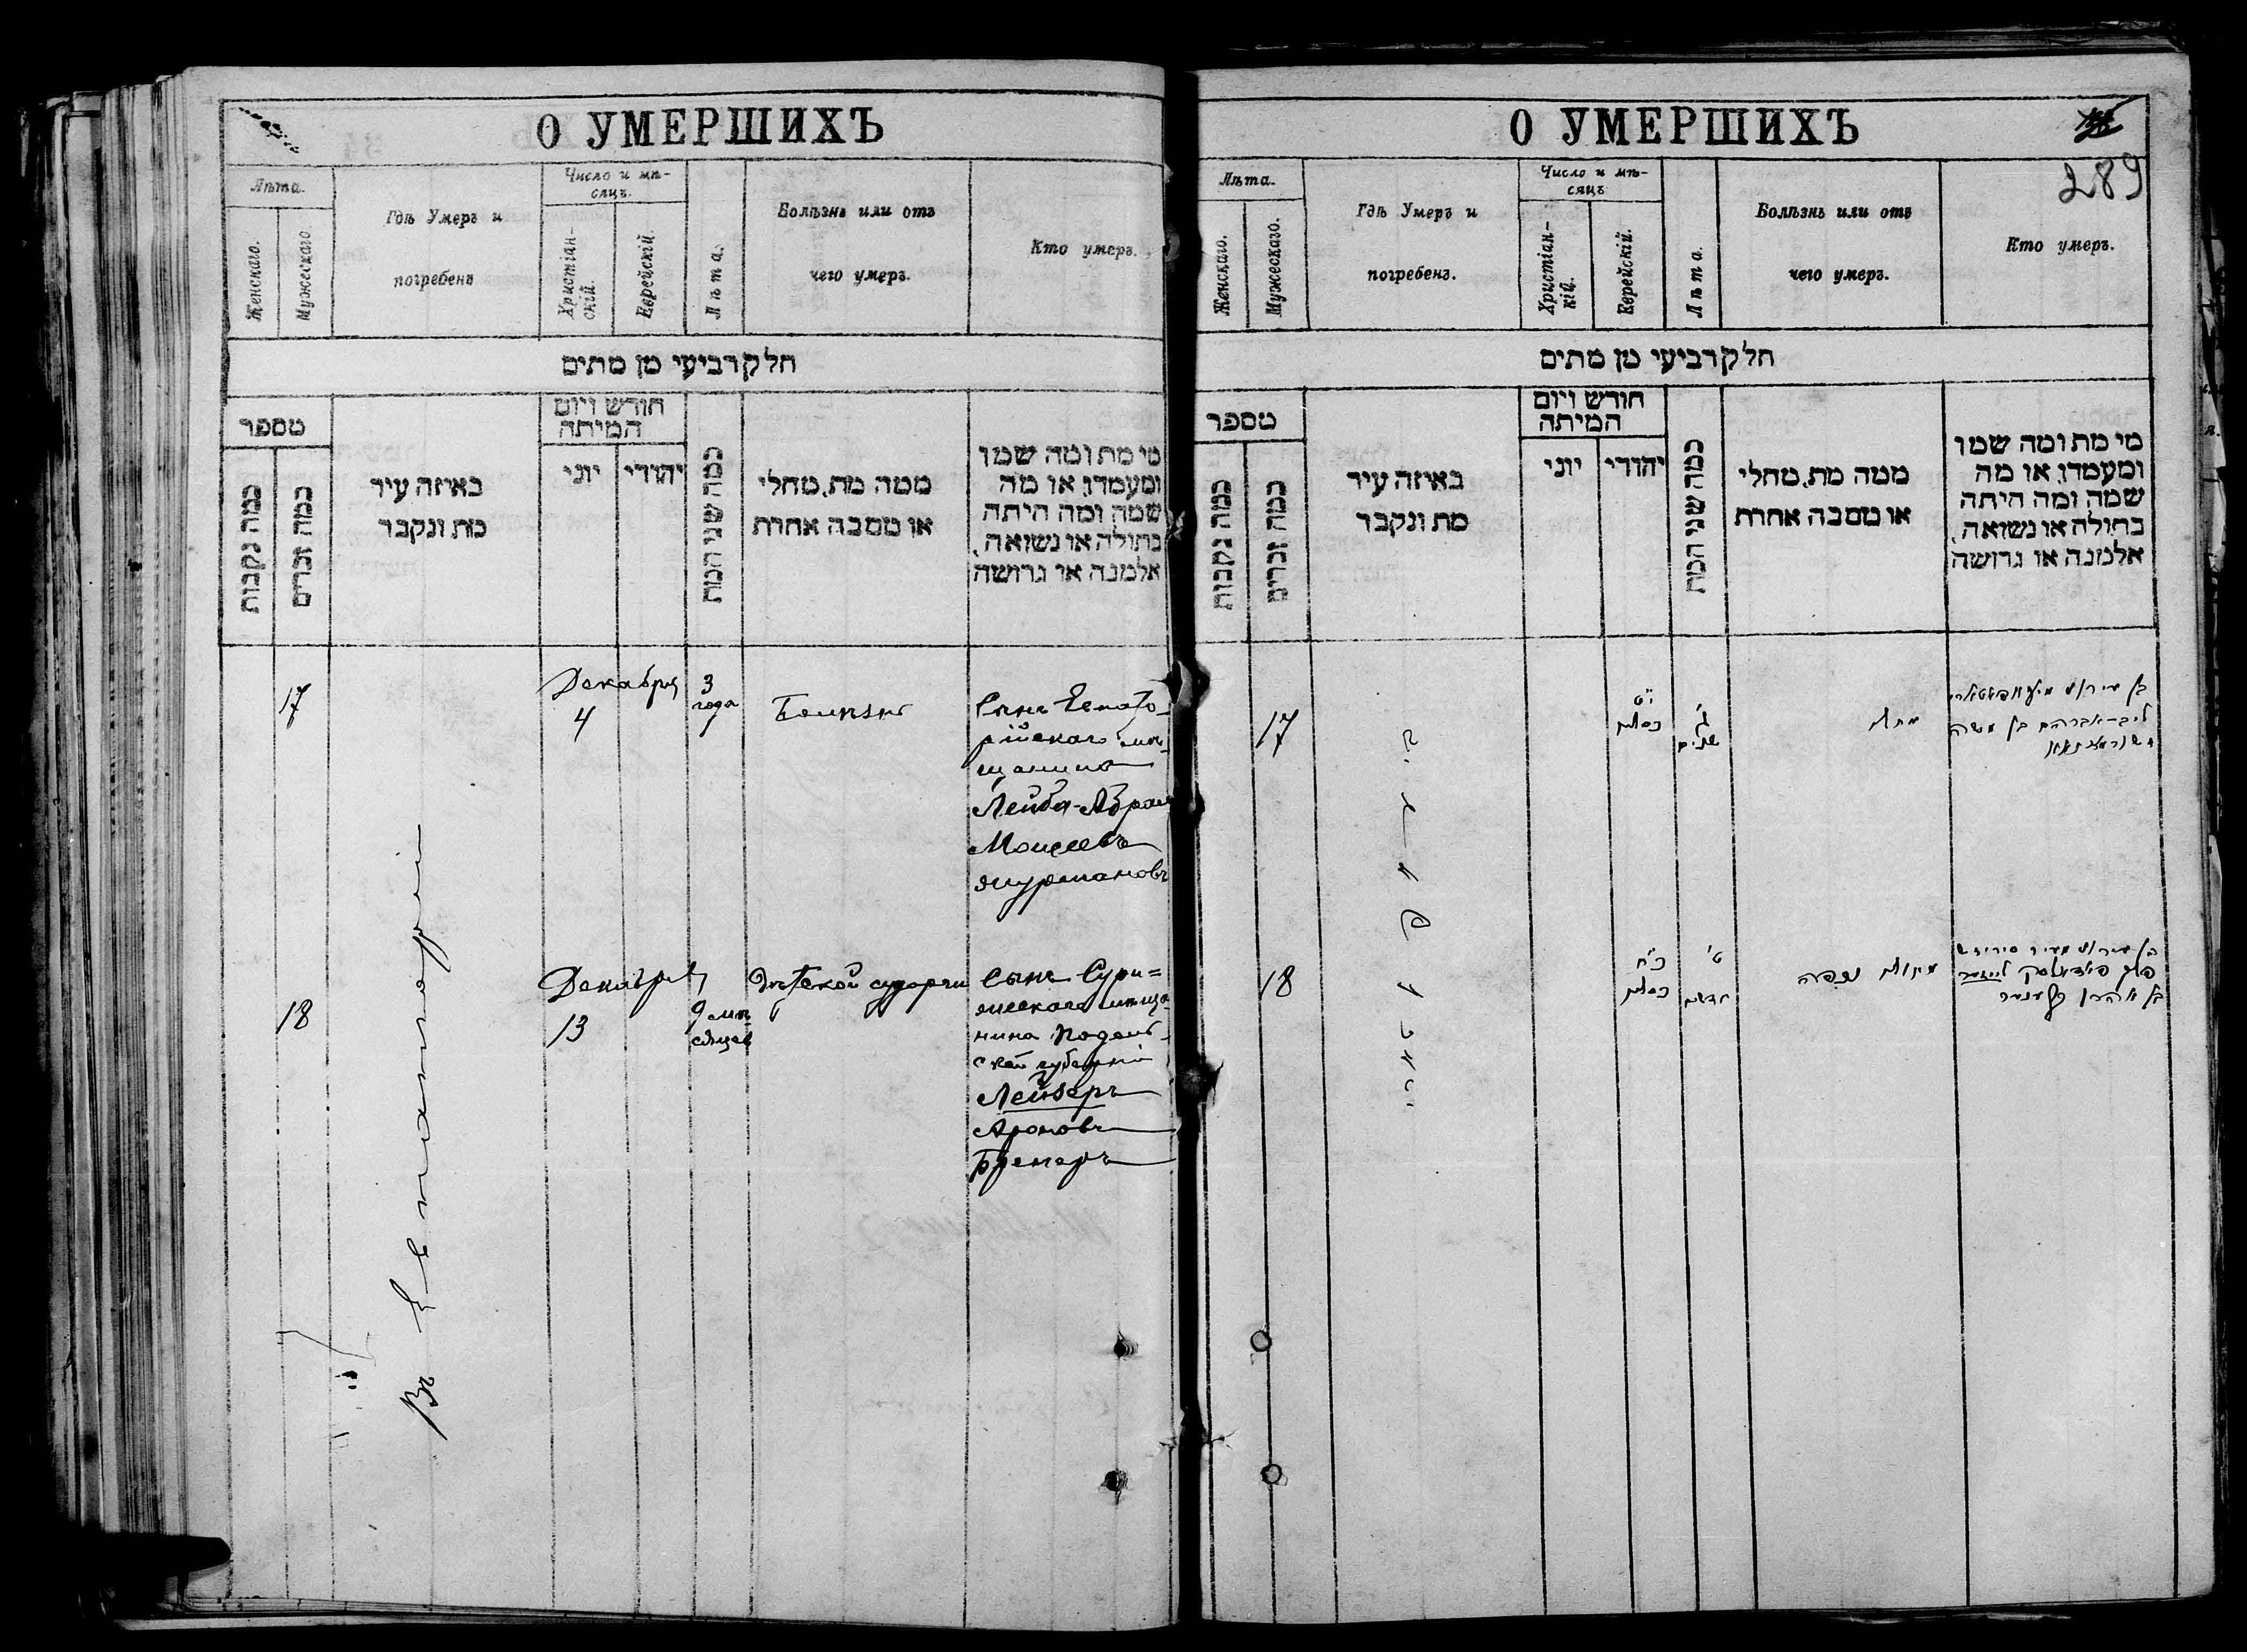 О УМЕРШИХЪ
Лѣта.
Женскаго.
Мужескаго
Гдѣ Умеръ и
погребенъ
Число и мѣ-
сяцъ.
Христіан-
скій.
Еврейскій.
Лѣта.
Болѣзнь или отъ
чего умеръ.
Кто умеръ.
חלק רביעי מן מתים
מספר
כמה נקבות
כמה זכרים
באיזה עיר
מת ונקבר
חודש ויום
המיתה
יוני
יהודי
כמה שני המת
ממה מת, מחלי
או מסבה אחרת
מי מת ומה שמו
ומעמדו, או מה
שמה ומה היתה
בתולה או נשואה,
אלמנה או גרושה
17
Декабря
4
3
года
Болѣзнь
Сынъ Евпато-
рійскаго мѣ-
щанина
Лейба-Абрам
Моисеевъ
18
Декабря
13
9 мѣ-
сяцев
Дѣтской судорги
Сынъ
мѣща-
нина Подоль-
ской губерніи
Лейзеръ
Ароновъ
Бренеръ
Въ Евпаторіи
О УМЕРШИХЪ
289
Лѣта.
Женскаго.
Мужескаго.
Гдѣ Умеръ и
погребенъ.
Число и мѣ-
сяцъ
Христіан-
кій.
Еврейскій.
Лѣта.
Болѣзнь или отъ
чего умеръ.
Кто умеръ.
חלק רביעי מן מתים
מספר
כמה נקבות
כמה זכרים
באיזה עיר
מת ונקבר
חודש ויום
המיתה
יוני
יהודי
כמה שני המת
ממה מת, מחלי
או מסבה אחרת
מי מת ומה שמו
ומעמדו, או מה
שמה ומה היתה
בתולה או נשואה,
אלמנה או גרושה
17
י"ט
כסלו
ג'
שנים
בן
ליב-אברהם בן משה
18
כ"ח
כסלו
ט'
חדשים
בן אהרן